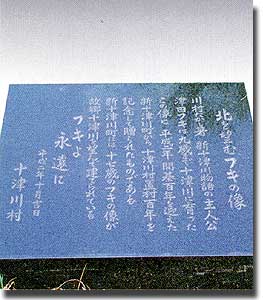 北を望むフキの像
川村たかし著 新十津川物語の主人公
津田フキは九歳まで十津川に育った
この像は平成二年開基百年を迎えた
新十津川町から十津川村置村百年を
記念して贈られたものである
新十津川町には十七歳のフキの像が
故郷十津川を望み建てられている
フキよ
永遠に
平成二年十月吉日
十津川村